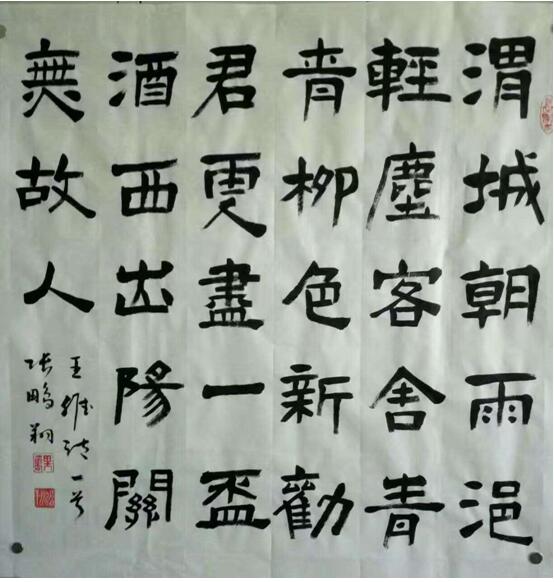 渭城朝雨浥
輕塵客舍青
青柳色新勸
君更盡一盃
酒西出陽關
無故人
王維诗一首
张鹏翔